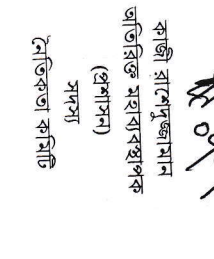 কাজী রাশেদুজ্জামান
অতিরিক্ত মহাব্যবস্থাপক
(প্রশাসন)
সদস্য
নৈতিকতা কমিটি